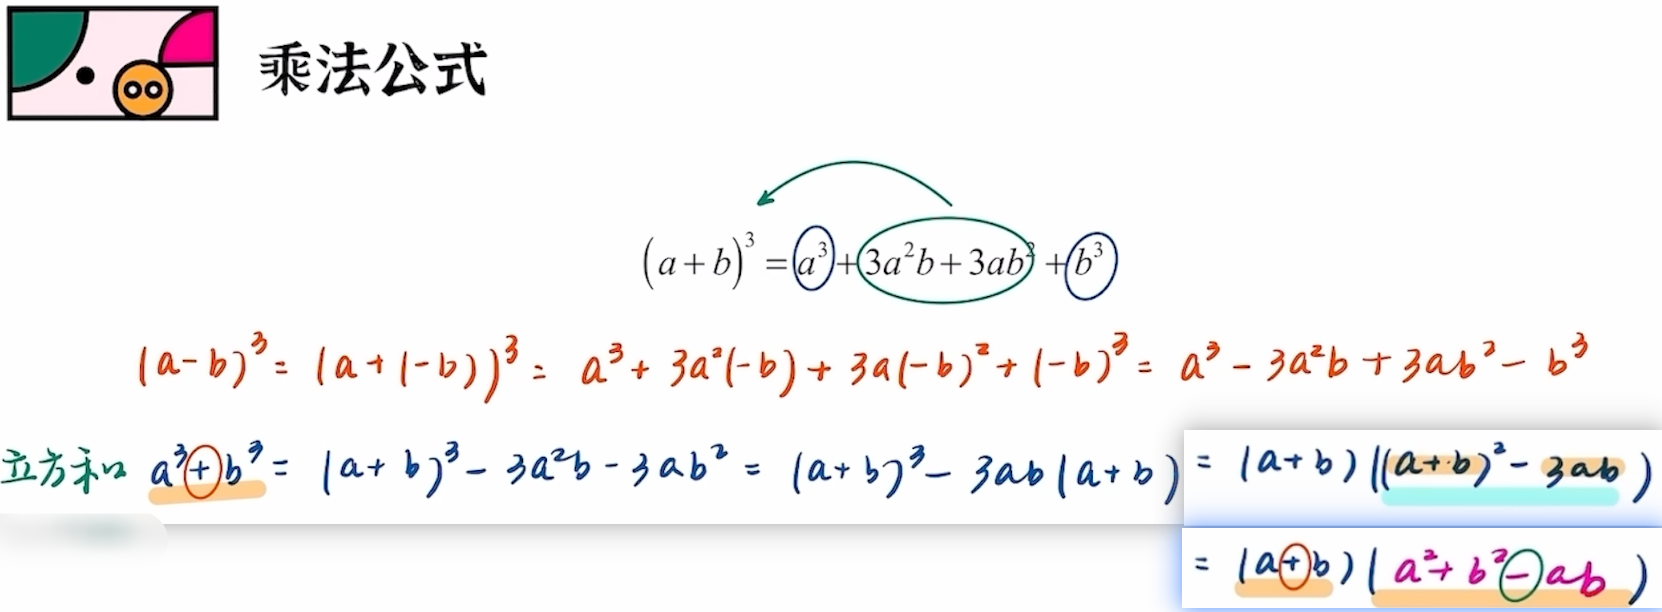 乘法公式
(a+b)³=a³+3a²b+3ab²+b³
(a-b)³=(a+(-b))³=a³+3a²(-b)+3a(-b)²+(-b)³=a³-3a²b+3ab²-b³
立方和 a³+b³=(a+b)³-3a²b-3ab²=(a+b)³-3ab(a+b)=(a+b)((a+b)²-3ab)
=(a+b)(a²+b²-ab)